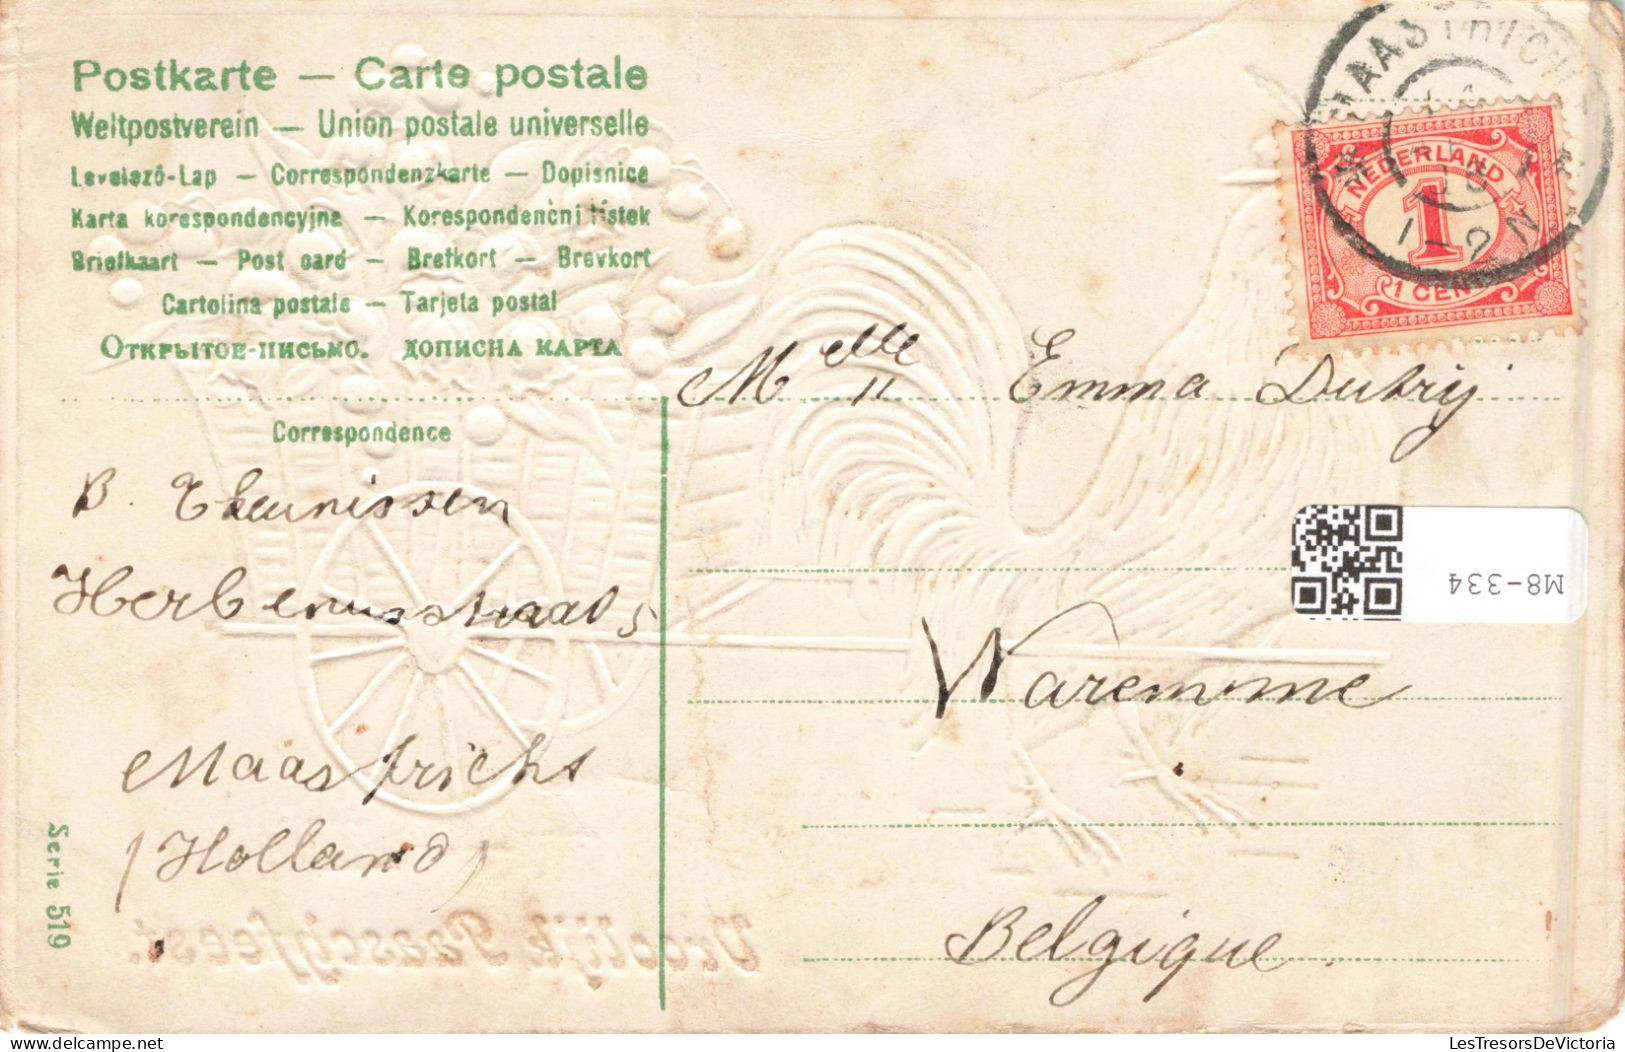 Postkarte — Carte postale
Weltpostverein — Union postale universelle
Levelező-Lap — Correspondenzkarte — Dopisnice
Karta korespondencyjna — Korespondenčni lístek
Briefkaart — Post card — Brefkort — Brevkort
Cartolina postale — Tarjeta postal
Открытое-письмо. дописна карта
Correspondence
B. Theunissen
Herbenusstraat 5
Maastricht
(Holland)
Serie 519
Vroolijk Paaschfeest.
MAASTRICHT
1-2 N
NEDERLAND
1
1 CENT
Melle Emma Dubrij
Waremme
Belgique.
M8-334
delcampe.net
LesTresorsDeVictoria